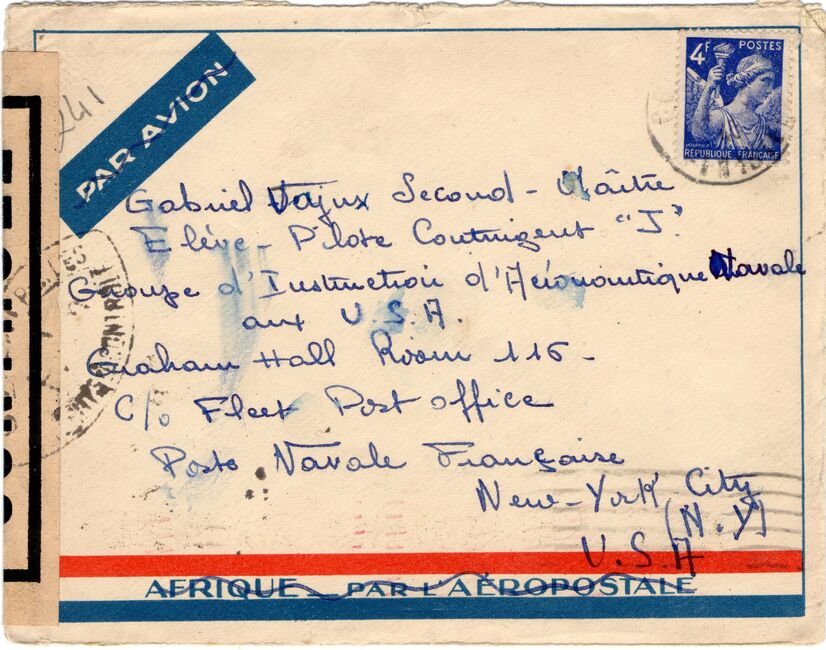 4F POSTES
RÉPUBLIQUE FRANÇAISE
PAR AVION
241
Gabriel Second-Maître
Elève-Pilote Contingent "J"
Groupe d'Instruction d'Aéronautique Navale
aux U.S.A.
Graham Hall Room 116-
C/o Fleet Post office
Poste Navale Française
New-York City
(N.Y)
U.S.A
AFRIQUE PAR L'AÉROPOSTALE